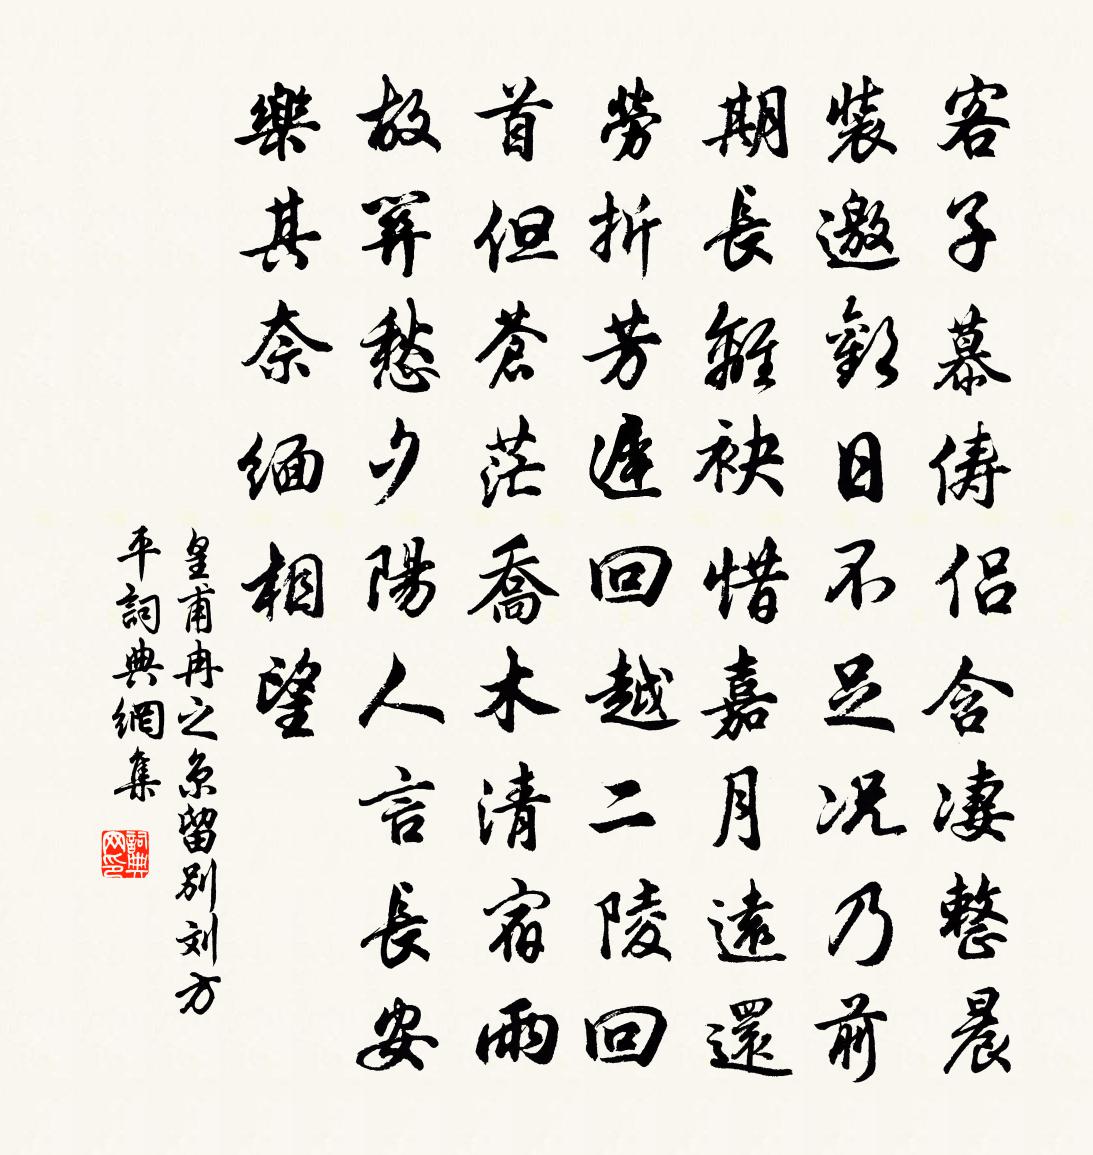 客子慕俦侣含凄整晨
裝邀歡日不足况乃前
期長離袂惜嘉月遠還
勞折芳遲回越二陵回
首但蒼茫喬木清宿雨
故關愁夕陽人言長安
樂其奈緬相望
皇甫冉之京留別刘方
平詞典網集
詞典网印